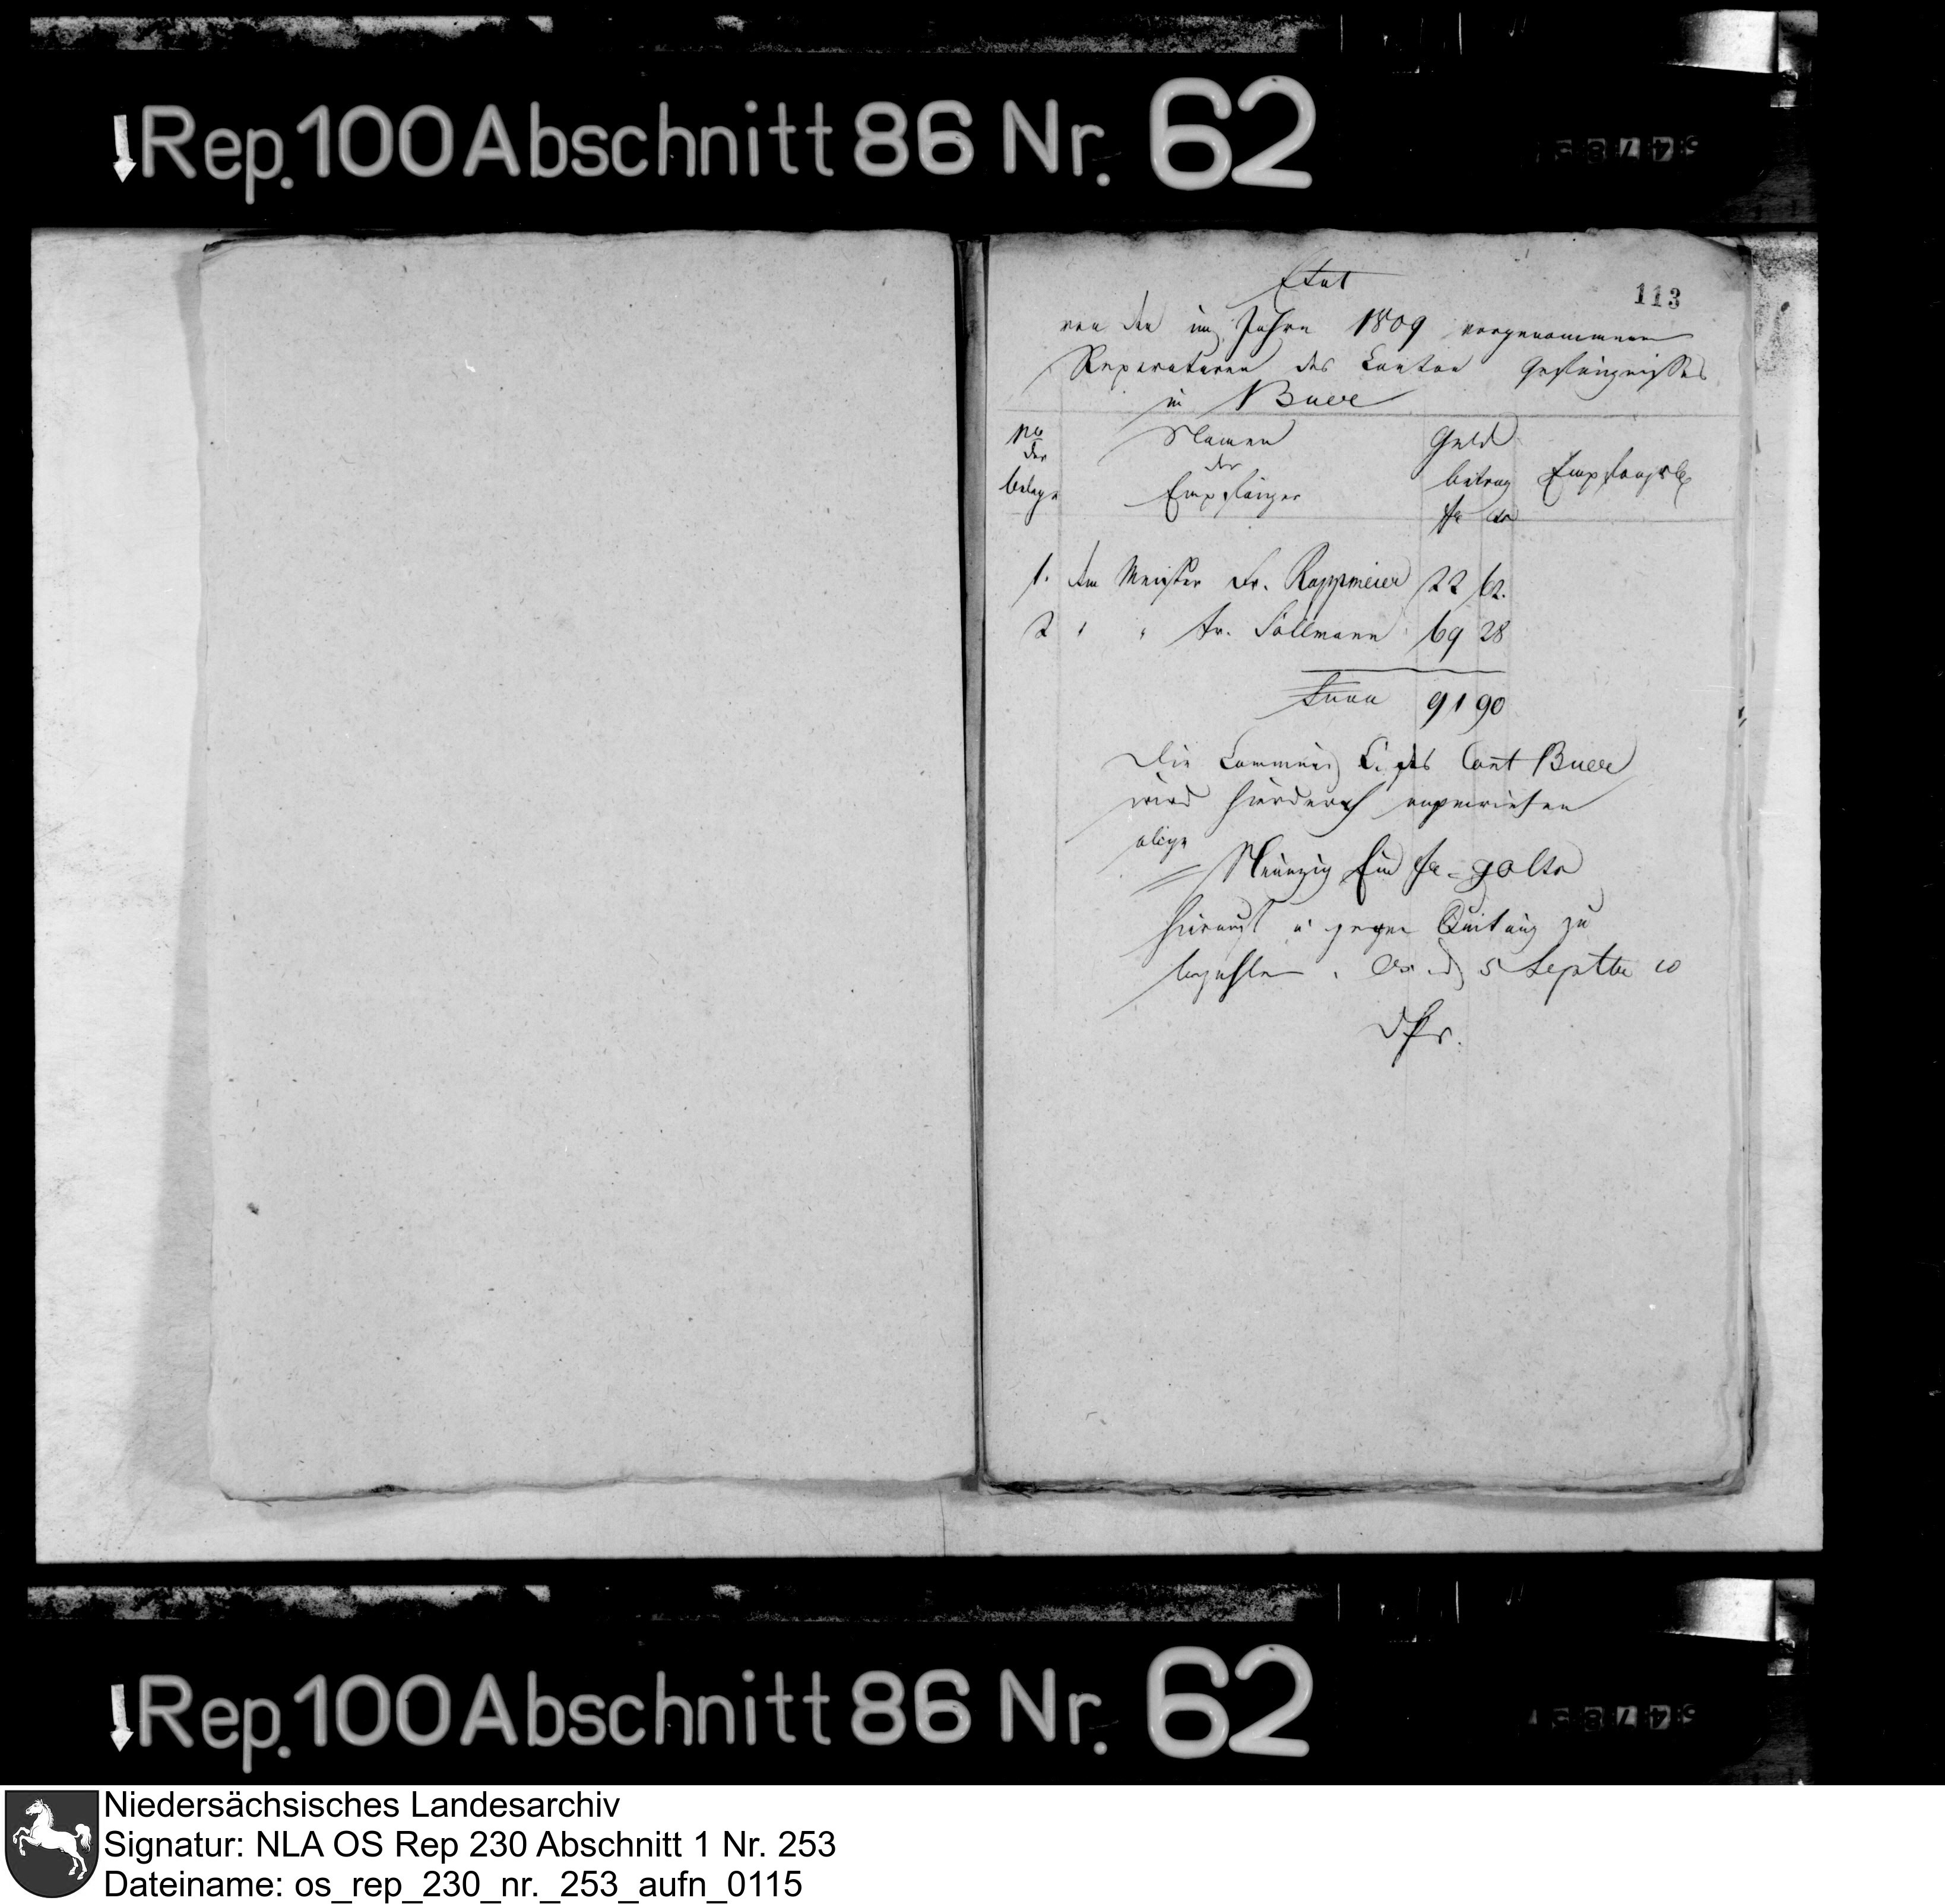 Rep. 100 Abschnitt 86 Nr. 62
113
Etat
von den im Jahre 1809 vorgenommenen
Reparaturen des Canton Gefängnisses
in Buer
No
der
belege
Namen
der
Empfänger
Geld
betrag
fr cs
1. dem Meister Fr. Rappmeier 22 62.
2 " " Fr. Söllmann 69 28
Summa 91 90
Die Commun des Cant Buer
wird hierdurch angewiesen
obige
= Neunzig Ein fr = 90 Cts
hieraus u gegen Quitung zu
bezahlen. Os d 5 Septbr 10
Rep. 100 Abschnitt 86 Nr. 62
Niedersächsisches Landesarchiv
Signatur: NLA OS Rep 230 Abschnitt 1 Nr. 253
Dateiname: os_rep_230_nr._253_aufn_0115